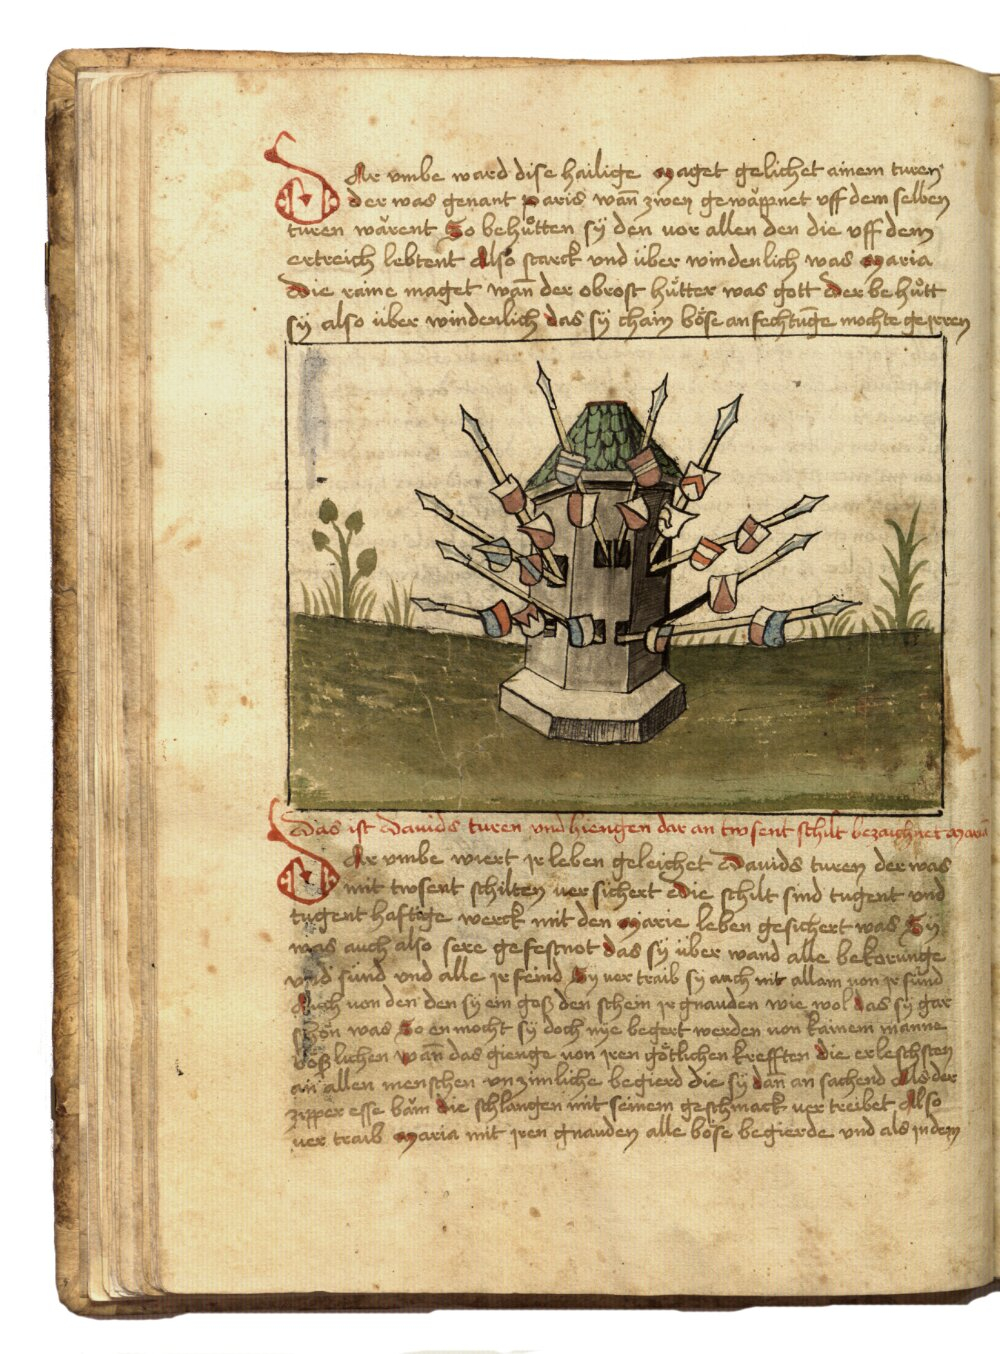 DAr vmbe ward dise hailige Maget gelichet ainem turen
der was genant paris wan̄ zwen gewäppnet vff dem selben
turen wärent So behůtten sÿ den vor allen den die vff dem
ertreich lebtent Also starck vnd über windenlich was Maria
Die raine maget wan̄ der obrost hůtter was gott Der behůtt
sÿ also über windenlich das sÿ chain böse anfechtūge mochte geirren
Das ist Dauids turen vnd hiengen dar an twsent schilt bezaichnet Maria
DAr vmbe wiert jr leben geleichet Dauids turen der was
mit twsent schilten ver sichert Die schilt sind tugent vnd
tugent hafftige werck mit den Marie leben gesichert was Sÿ
was auch also sere gefestnot das sÿ über wand alle bekorunge
vnd sünd vnd alle jr feind Sÿ ver traib sÿ auch nit allain von jr sünd
Auch von den den sÿ ein goß den schein jr gnauden wie wol das sÿ gar
schön was So en mocht sÿ doch nÿe begert werden von kainem manne
bößlichen wan̄ das gienge von jren götlichen krefften die erleschsten
an allen menschen vn zimliche begierd die sÿ dan̄ an sachend Als der
zipper esse bäm die schlangen mit seinem geschmack ver treibet Also
ver traib Maria mit jren gnauden alle böse begierde vnd als in dem